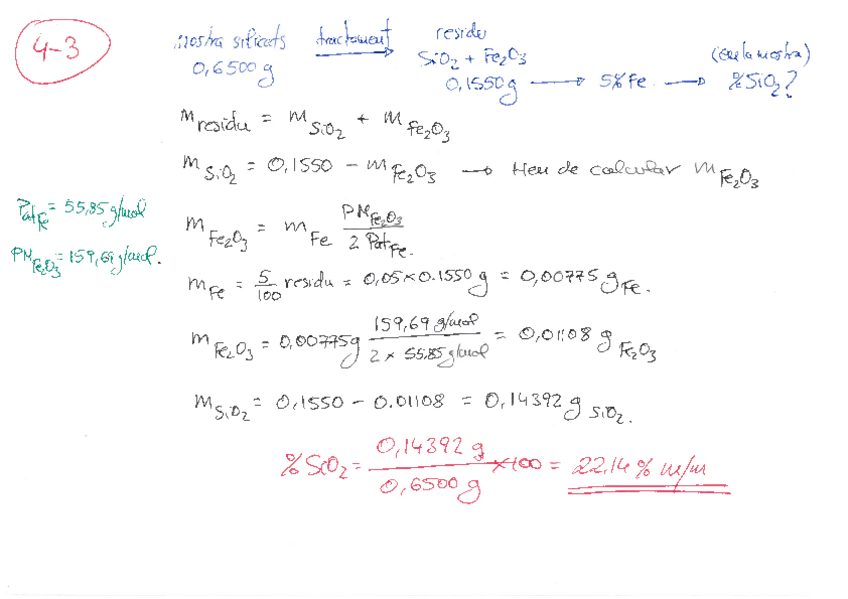 4-3
mostra silicats tractament residu
0,6500 g SiO2 + Fe2O3 (en la mostra)
0,1550 g → 5% Fe → % SiO2?
m residu = m SiO2 + m Fe2O3
m SiO2 = 0,1550 - m Fe2O3 → Heu de calcular m Fe2O3
Pat Fe = 55,85 g/mol
PM Fe2O3 = 159,69 g/mol.
m Fe2O3 = m Fe PM Fe2O3 / 2 Pat Fe.
m Fe = 5/100 residu = 0,05 x 0.1550 g = 0,00775 g Fe.
m Fe2O3 = 0,00775 g 159,69 g/mol / 2 x 55,85 g/mol = 0,01108 g Fe2O3
m SiO2 = 0,1550 - 0.01108 = 0,14392 g SiO2.
% SiO2 = 0,14392 g / 0,6500 g x 100 = 22,14 % m/m